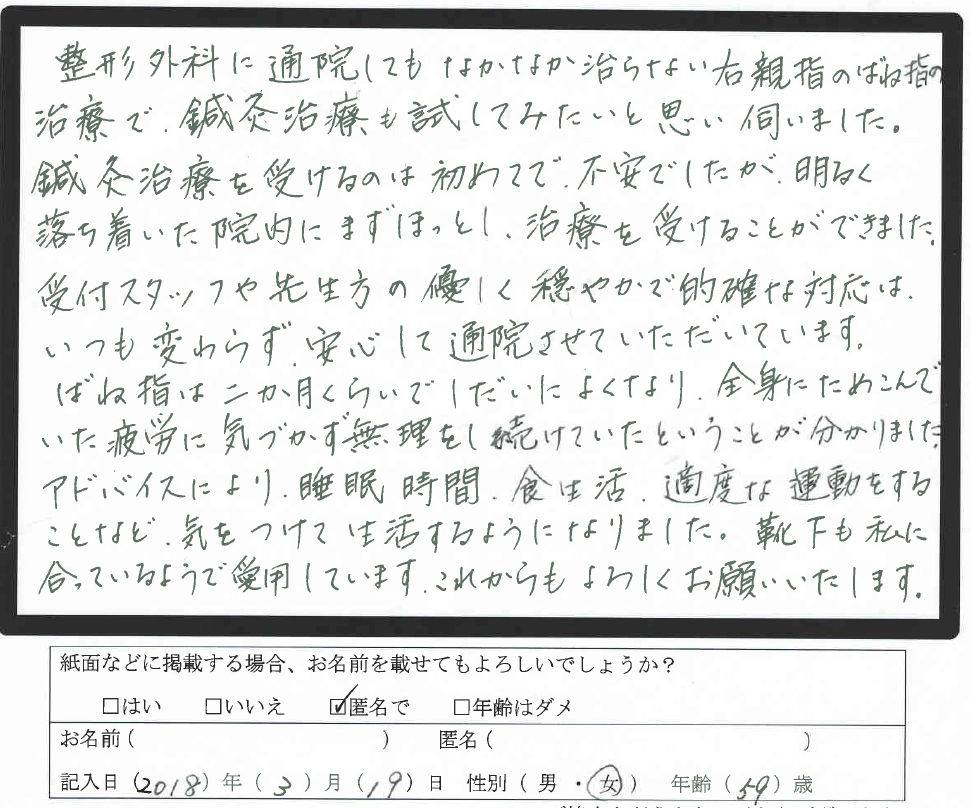 整形外科に通院してもなかなか治らない右親指のばね指の
治療で、鍼灸治療も試してみたいと思い伺いました。
鍼灸治療を受けるのは初めてで、不安でしたが、明るく
落ち着いた院内にまずほっとし、治療を受けることができました。
受付スタッフや先生方の優しく穏やかで的確な対応は、
いつも変わらず、安心して通院させていただいています。
ばね指は二か月くらいでしだいによくなり、全身にためこんで
いた疲労に気づかず無理をし続けていたということが分かりました。
アドバイスにより、睡眠時間、食生活、適度な運動をする
ことなど、気をつけて生活するようになりました。靴下も私に
合っているようで愛用しています。これからもよろしくお願いいたします。
紙面などに掲載する場合、お名前を載せてもよろしいでしょうか？
□はい □いいえ ☑匿名で □年齢はダメ
お名前（ ） 匿名（ ）
記入日（2018）年（3）月（19）日 性別（男・女） 年齢（59）歳